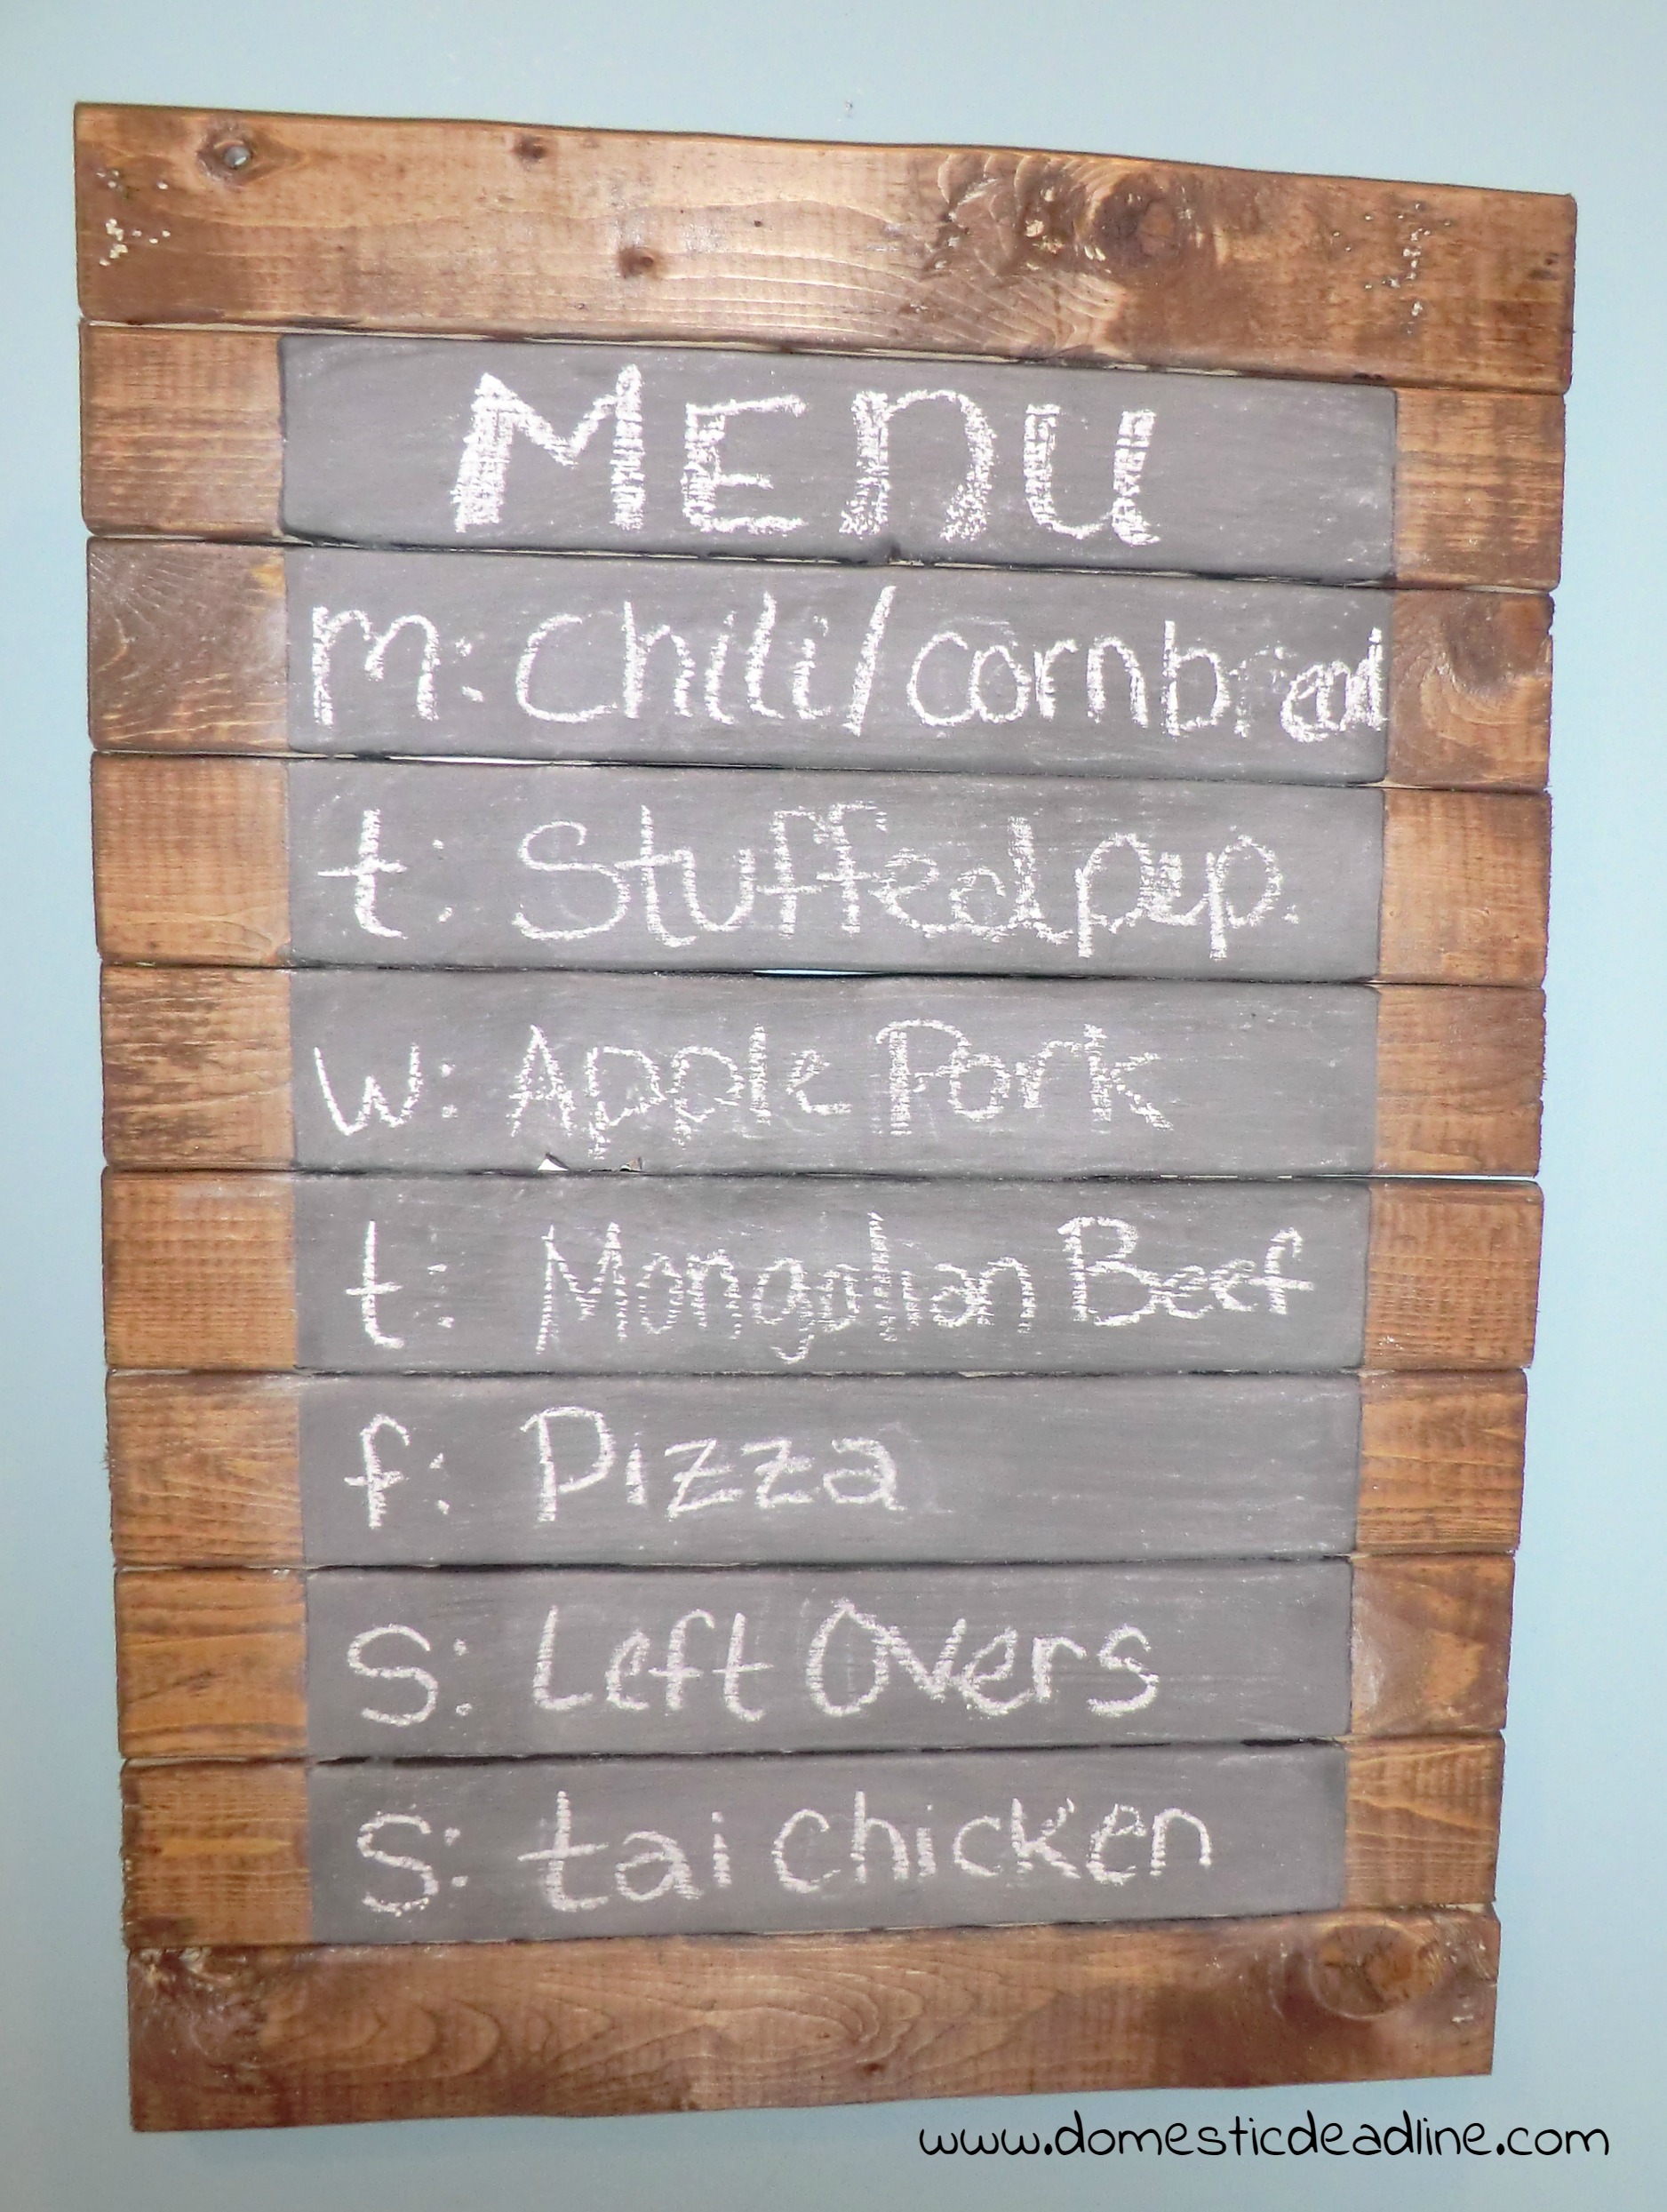 MEnu
m: Chili/cornbread
t: Stuffed pep.
w: Apple Pork
t: Mongolian Beef
f: Pizza
S: Left Overs
S: tai chicken
www.domesticdeadline.com